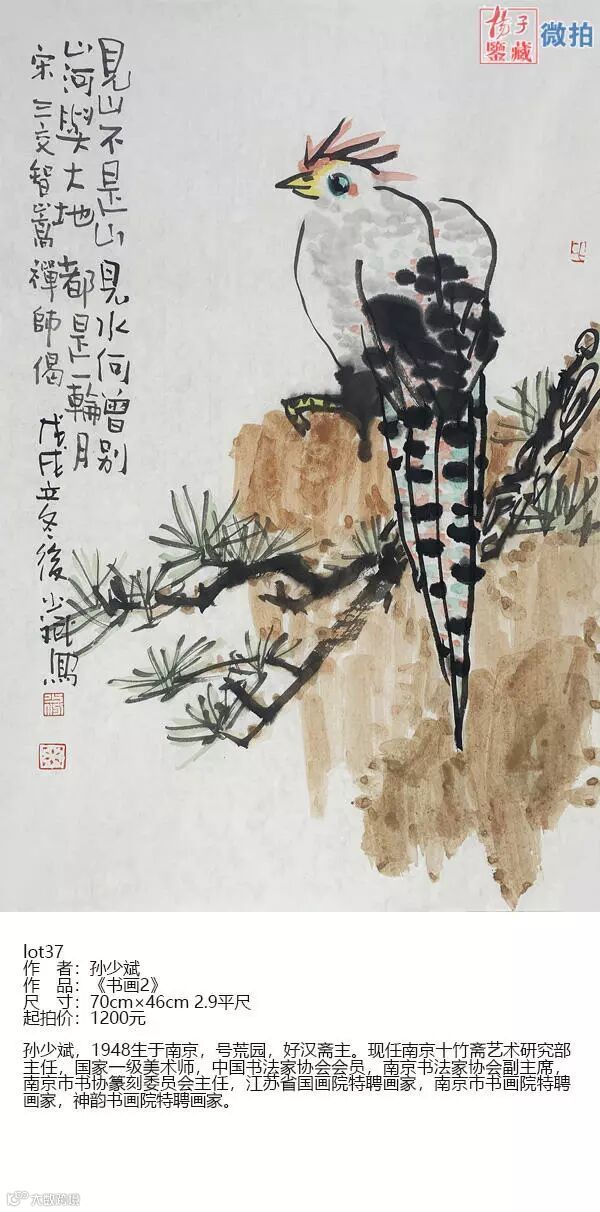 杨子
鉴藏
微拍
見山不是山 見水何曾别
山河與大地 都是一輪月
宋 三交智嵩禪師偈
戊戌立冬後少斌寫
lot37
作 者：孙少斌
作 品：《书画2》
尺 寸：70cm×46cm 2.9平尺
起拍价：1200元
孙少斌，1948生于南京，号荒园，好汉斋主。现任南京十竹斋艺术研究部
主任，国家一级美术师，中国书法家协会会员，南京书法家协会副主席，
南京市书协篆刻委员会主任，江苏省国画院特聘画家，南京市书画院特聘
画家，神韵书画院特聘画家。
大数跨境